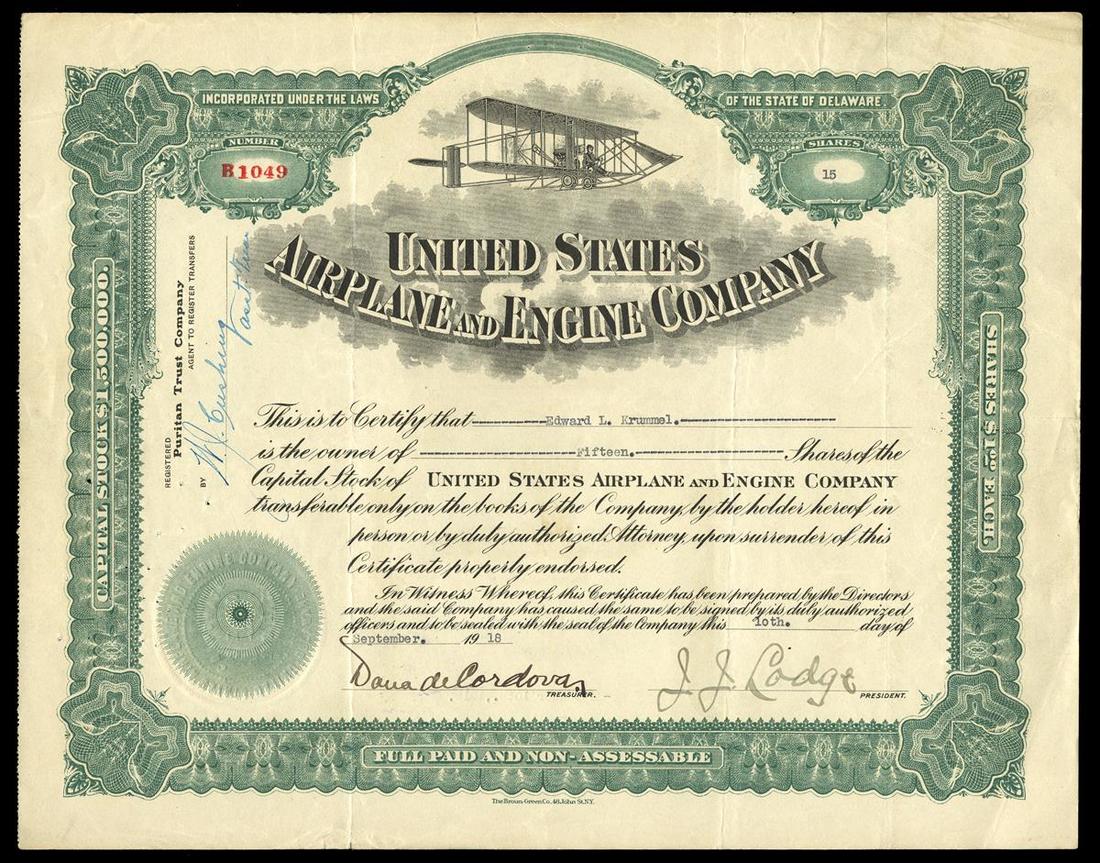 INCORPORATED UNDER THE LAWS
OF THE STATE OF DELAWARE.
NUMBER
B1049
SHARES
15
UNITED STATES
AIRPLANE AND ENGINE COMPANY
CAPITAL STOCK $1,500,000.
SHARES $1.00 EACH.
REGISTERED
Puritan Trust Company
AGENT TO REGISTER TRANSFERS
BY W. Cushing
This is to Certify that Edward L. Krummel.
is the owner of Fifteen. Shares of the
Capital Stock of UNITED STATES AIRPLANE AND ENGINE COMPANY
transferable only on the books of the Company, by the holder hereof in
person or by duly authorized Attorney, upon surrender of this
Certificate properly endorsed.
In Witness Whereof, this Certificate has been prepared by the Directors
and the said Company has caused the same to be signed by its duly authorized
officers and to be sealed with the seal of the Company this 10th. day of
September. 1918
Dana de Cordova,
TREASURER.
J. J. Lodge
PRESIDENT.
ENGINE COMPANY
FULL PAID AND NON-ASSESSABLE
The Broun-Green Co. 48 John St. N.Y.